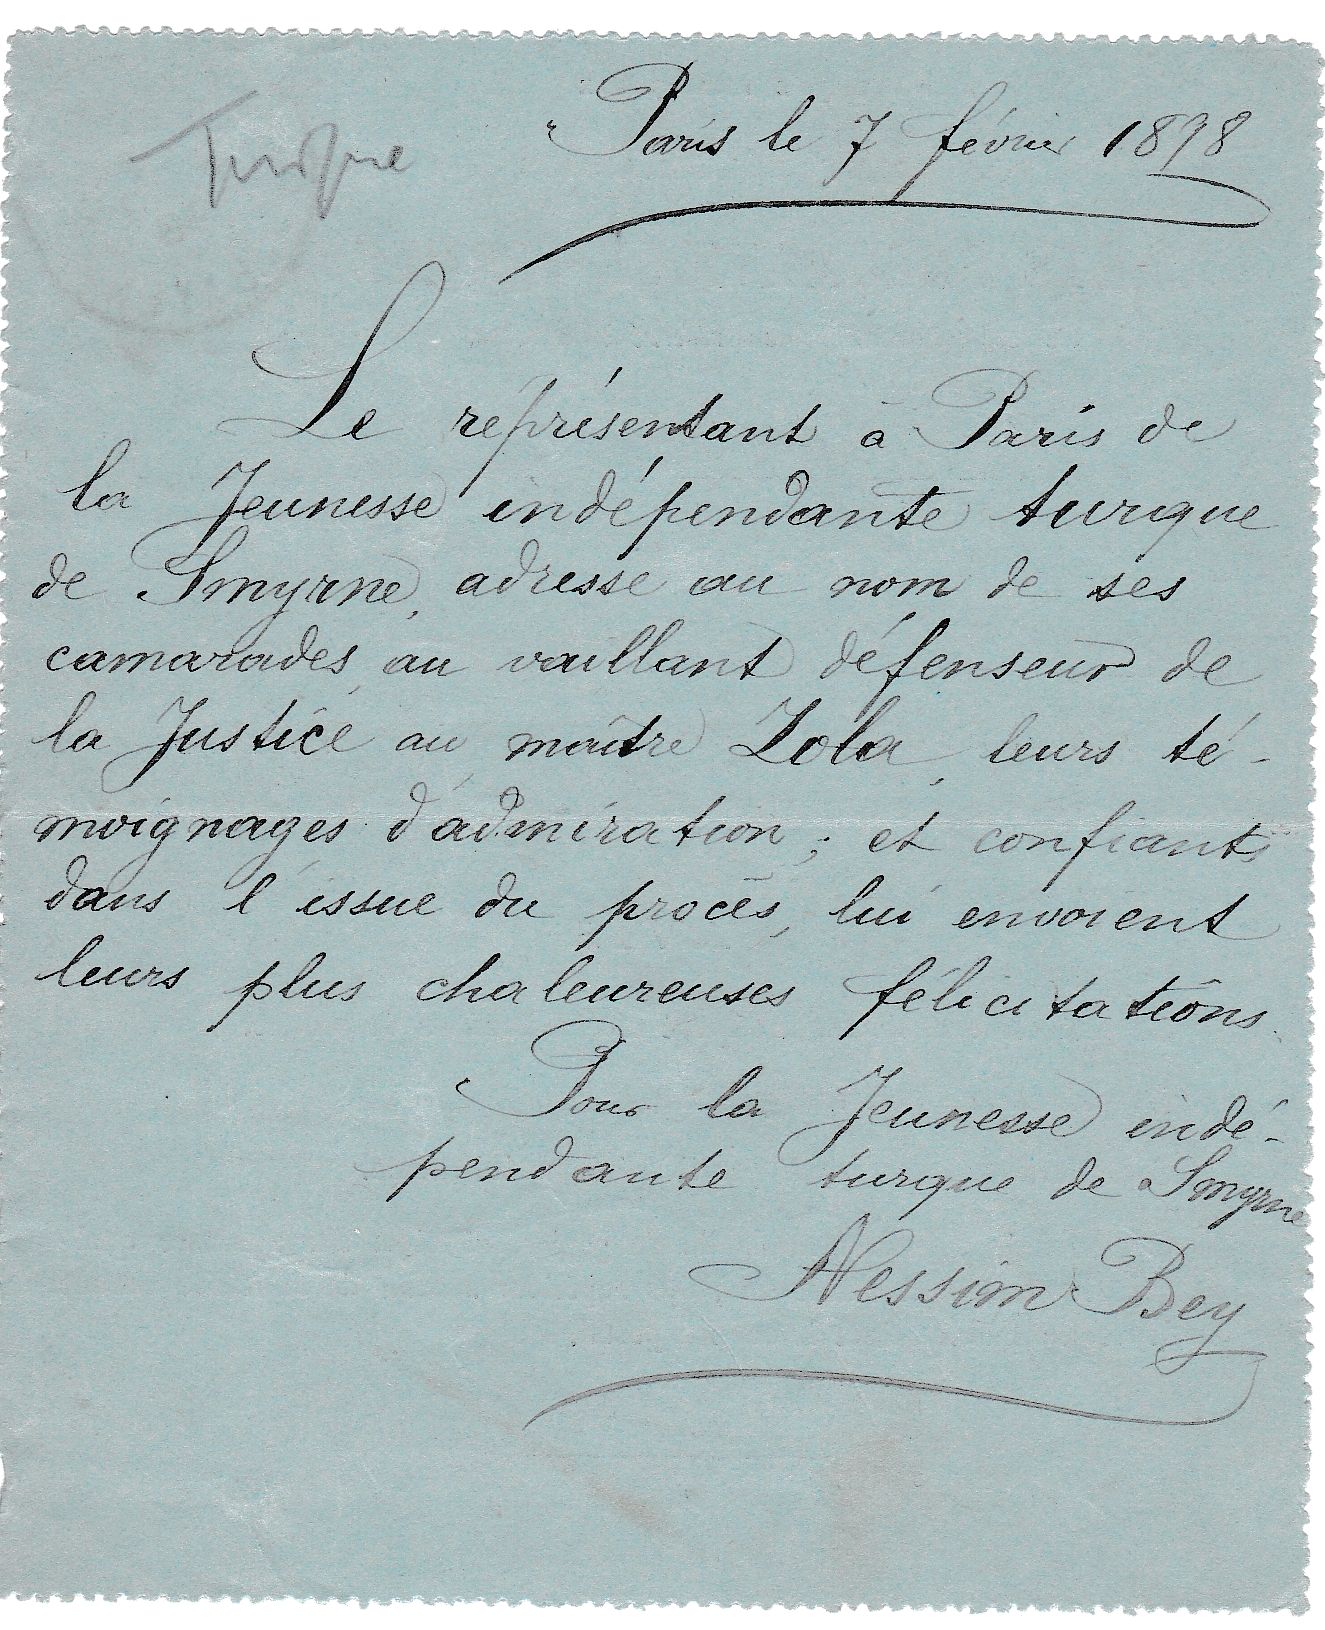 Turquie
Paris le 7 février 1898
Le représentant à Paris de
la Jeunesse indépendante turque
de Smyrne, adresse au nom de ses
camarades, au vaillant défenseur de
la Justice au maître Zola, leurs té-
moignages d'admiration ; et confiants
dans l'issue du procès, lui envoient
leurs plus chaleureuses félicitations.
Pour la Jeunesse indé-
pendante turque de Smyrne
Nessim Bey